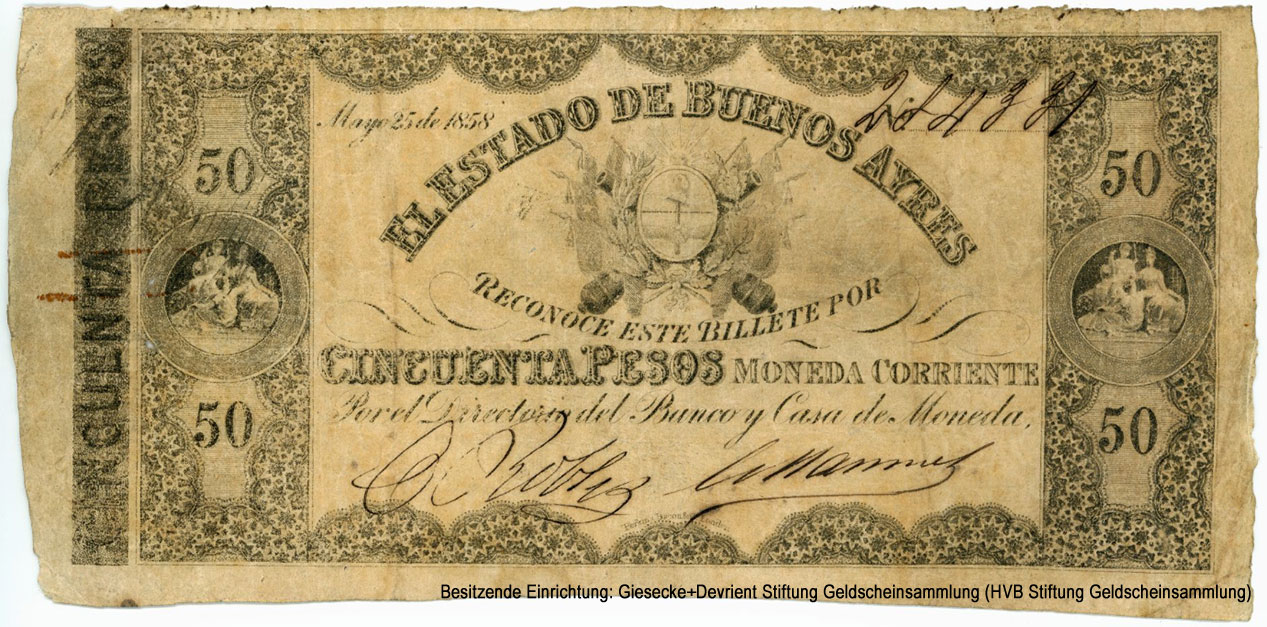 CINCUENTA PESOS
Mayo 25 de 1858
50
50
EL ESTADO DE BUENOS AYRES
RECONOCE ESTE BILLETE POR
CINCUENTA PESOS MONEDA CORRIENTE
Por el Directorio del Banco y Casa de Moneda,
50
50
Besitzende Einrichtung: Giesecke+Devrient Stiftung Geldscheinsammlung (HVB Stiftung Geldscheinsammlung)